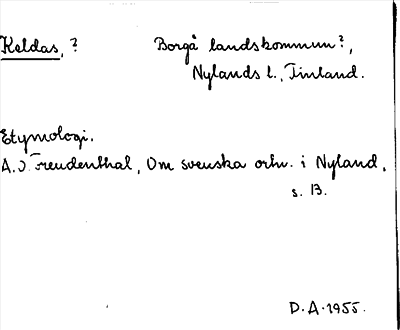 Keldas, ? Borgå landskommun?,
Nylands l., Finland.
Etymologi.
A. O. Freudenthal, Om svenska ortn. i Nyland,
s. 13.
D. A. 1955.